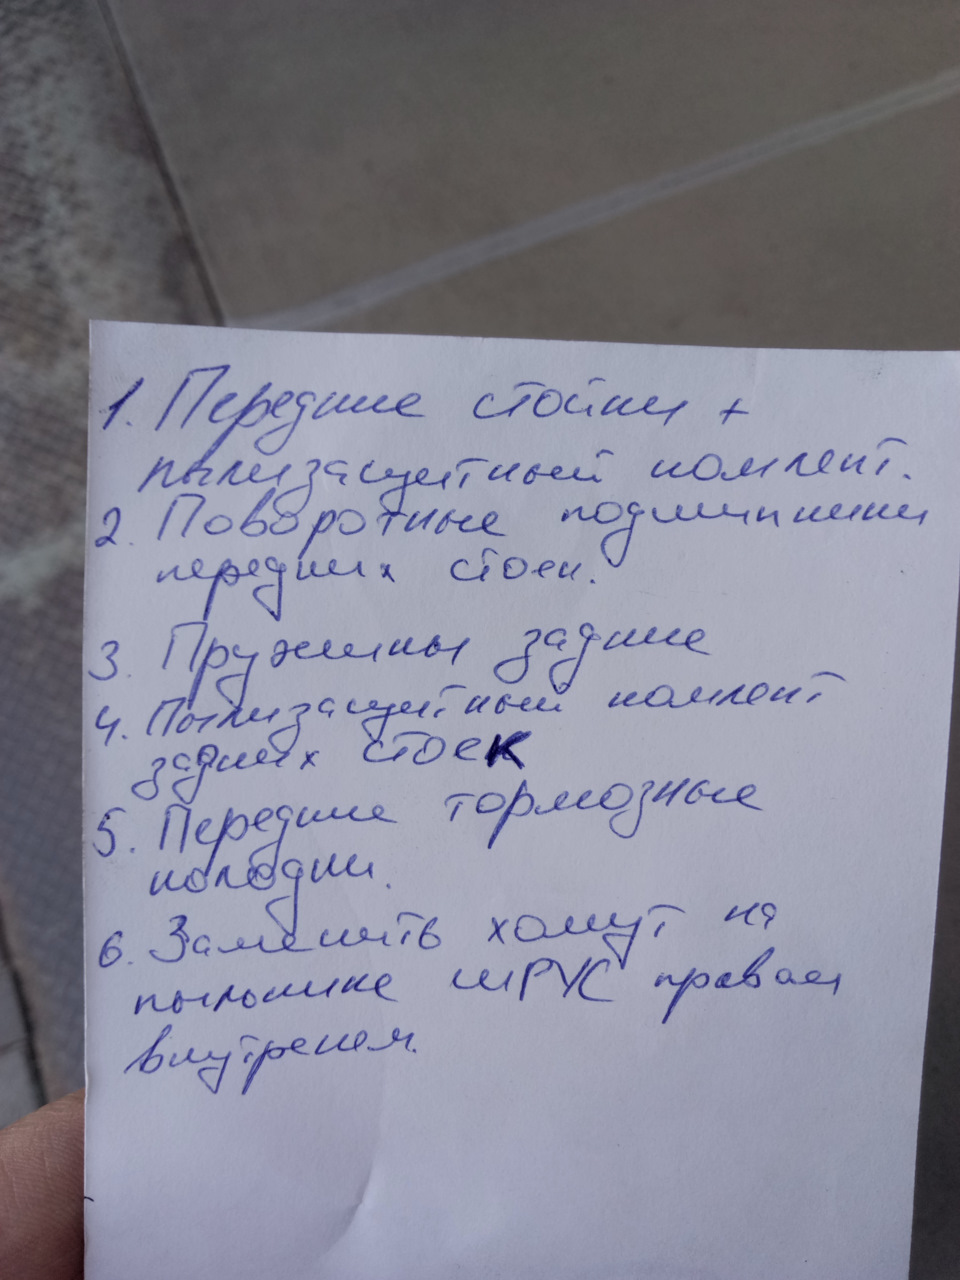 1. Передние стойки +
пылизащитный комлект.
2. Поворотные подшипники
передних стоек.
3. Пружины задние
4. Пылизащитный комлект
задних стоек
5. Передние тормозные
колодки.
6. Заменить хомут на
пыльнике ШРУС правам
внутренем.